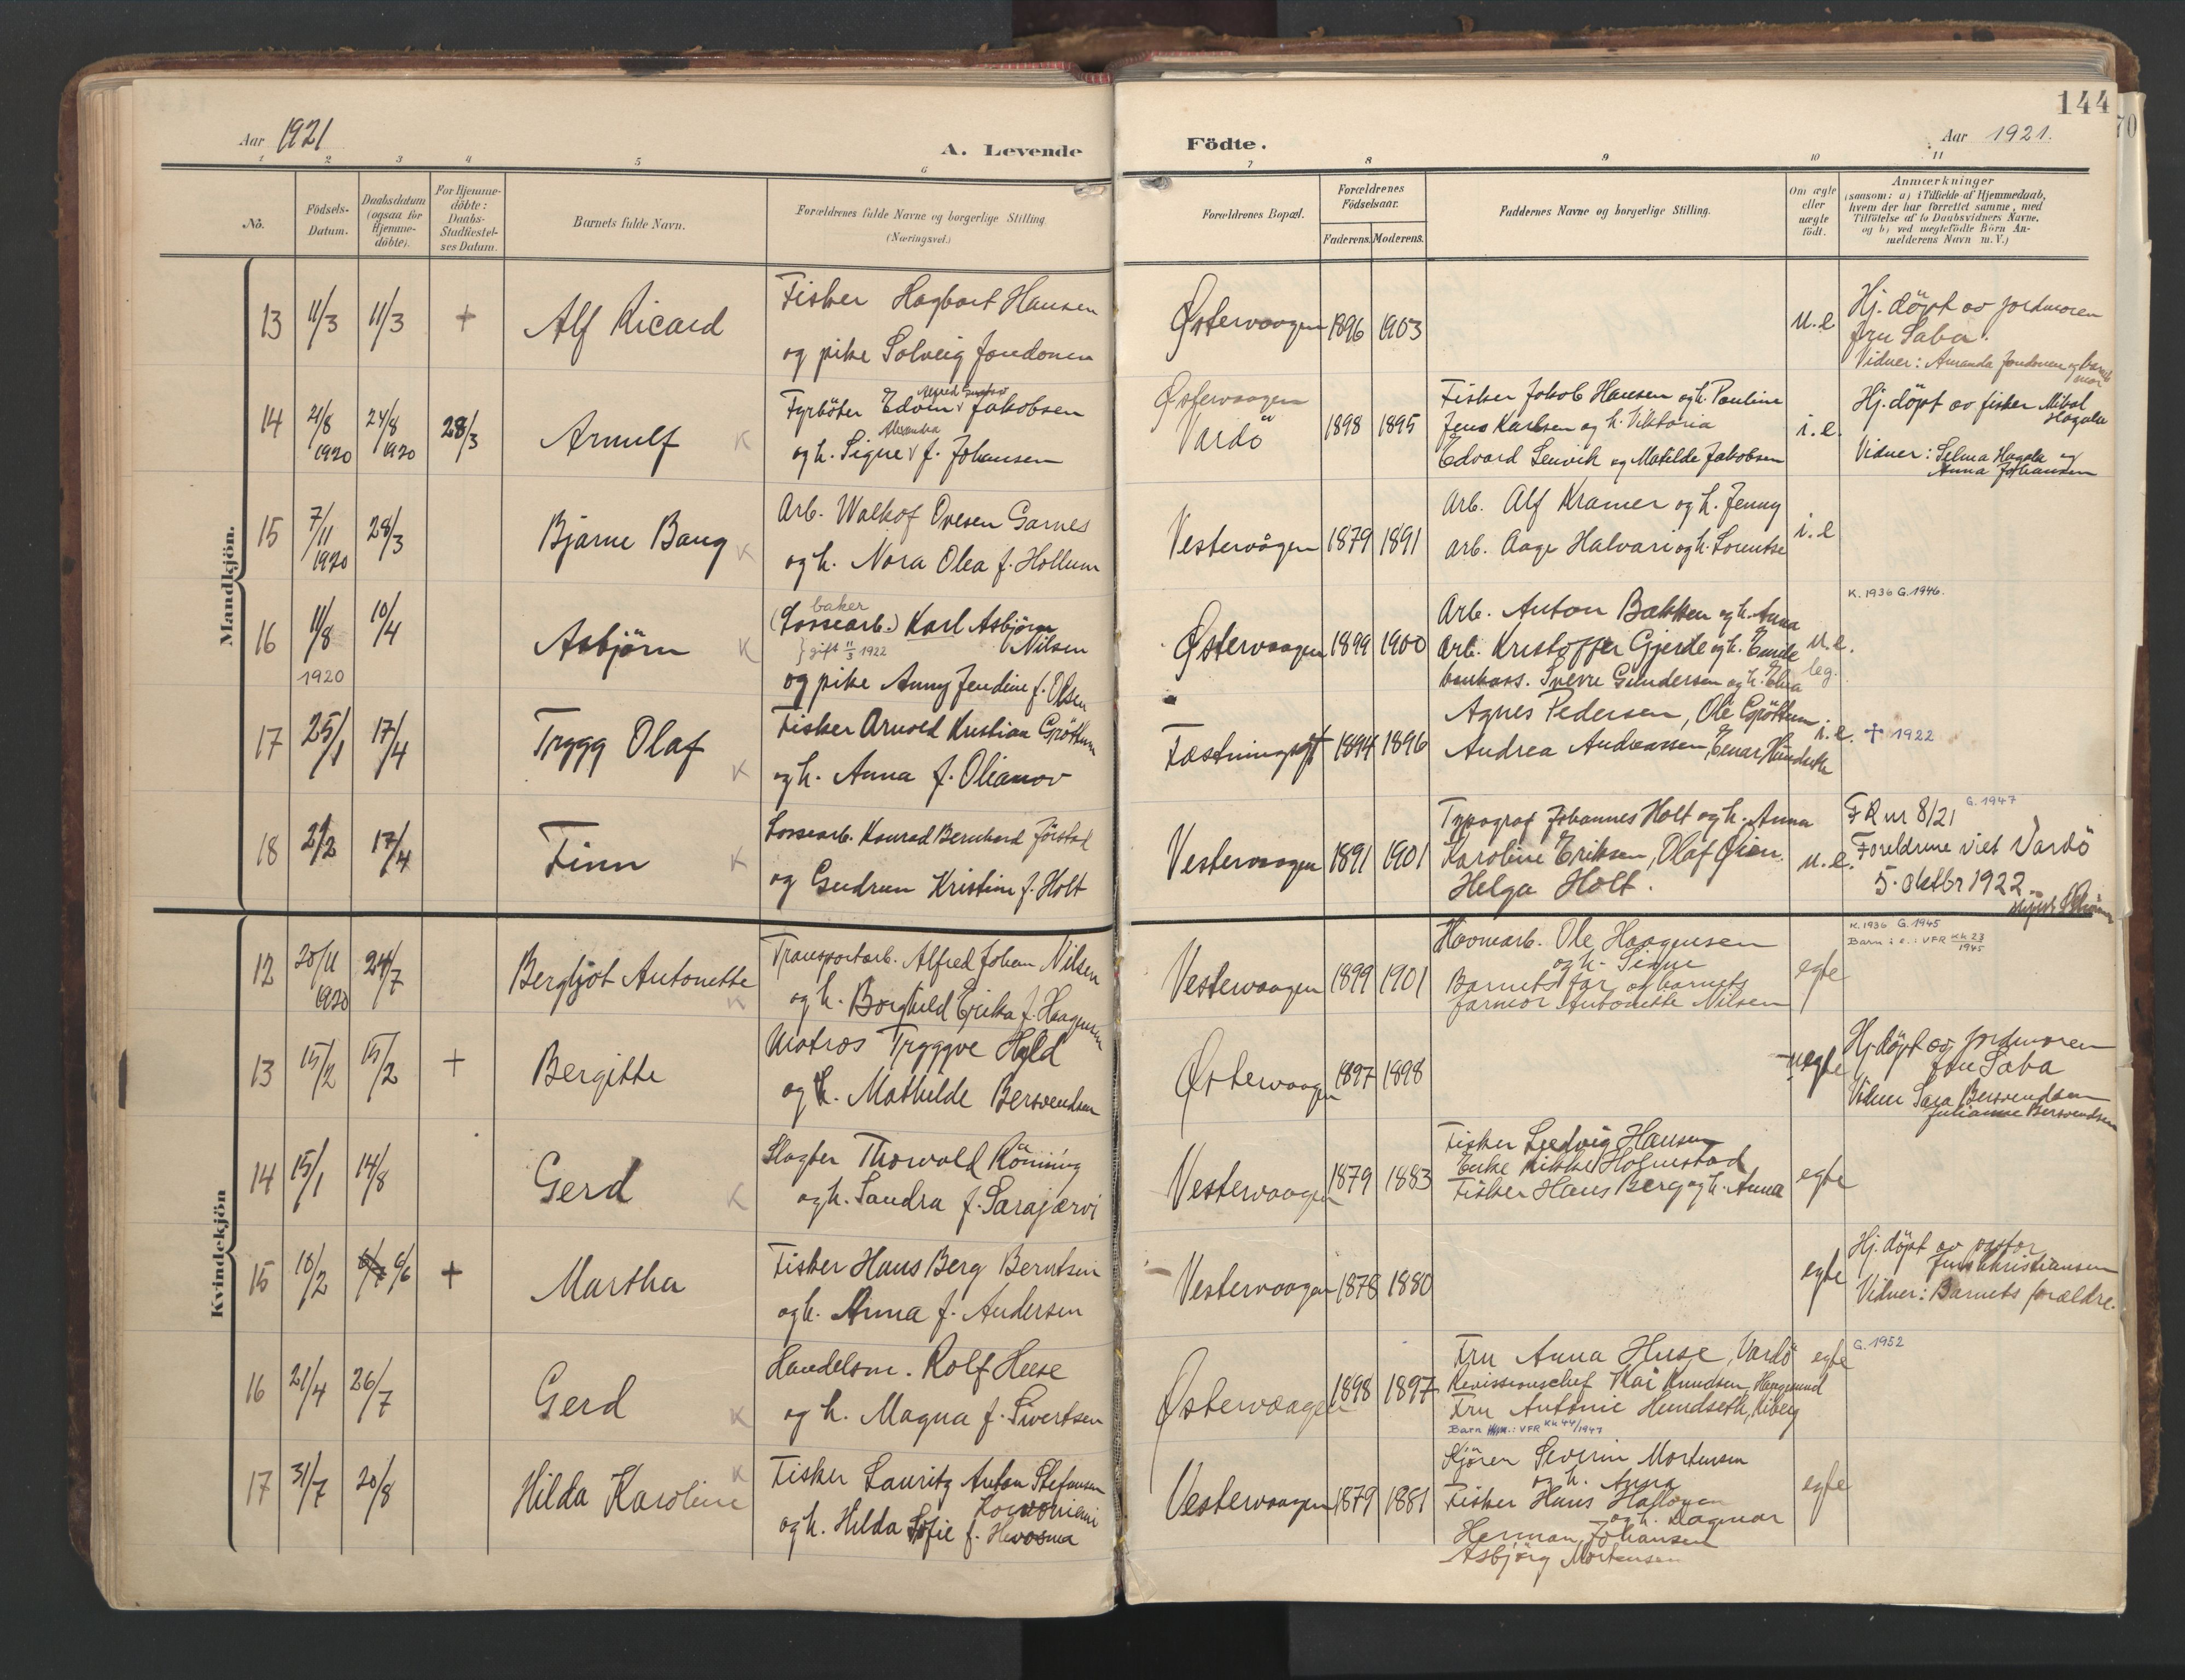 144
70
Aar 1921
A. Levende
Födte.
Aar 1921.
1 2 3 4 5 6 7 8 9 10 11
No.
Födsels-
Datum.
Daabsdatum
(ogsaa for
Hjemme-
döbte).
For Hjemme-
döbte:
Daabs-
Stadfæstel-
ses Datum.
Barnets fulde Navn.
Forældrenes fulde Navne og borgerlige Stilling
(Næringsvei.)
Forældrenes Bopæl.
Forældrenes
Födselsaar.
Faderens. Moderens.
Faddernes Navne og borgerlige Stilling.
Om ægte
eller
uægte
födt.
Anmærkninger
(saasom: a) i Tilfælde af Hjemmedaab,
hvem der har forrettet samme, med
Tilföielse af to Daabsvidners Navne.
og b) ved uegtefödte Börn An-
melderens Navn m. V.)
Mandkjön.
13 11/3 11/3 + Alf Ricard
Fisker Hagbart Hansen
og pike Solveig Jondonen
Østervaagen 1896 1903 u.e
Hj. döpt av jordmoren
fru Saba.
Vidner: Amanda Jondonen og barnets
mor
14 21/8 1920 24/8 1920 28/3 Arnulf K
Fyrböter Edvin Alfred Gustav Jakobsen
og h. Signe Alexandra f. Johansen
Østervaagen
Vardö 1898 1895
Fisker Jakob Hansen og h. Pauline
Jens Karlsen og h. Viktoria
Edvard Lenvik og Matilde Jakobsen
i.e.
Hj. döpt av fisker Mikal
Hagala
Vidner: Selma Hagala og
Anna Johansen
15 7/11 1920 28/3 Bjarne Bang K
Arb. Walkof Ovesen Garnes
og h. Nora Olea f. Hollum
Vestervågen 1879 1891
Arb. Alf Kramer og h. Jenny
arb. Aage Halvari og h. Lorentse
i.e
16 11/8 1920 10/4 Asbjörn K
baker
(Lossearb.) Karl Asbjörn
Nilsen
} gift 11/3 1922
og pike Anny Jendine f. Olsen
Østervaagen 1899 1900
Arb. Anton Bakken og h. Anna
Arb. Kristoffer Gjerde og h. Emilie
bankass. Sverre Gundersen og h. Elna
u.e.
leg.
K. 1936 G. 1946.
17 25/1 17/4 Trygg Olaf K
Fisker Arnold Kristian Gröttum
og h. Anna f. Olianov
Fæstningsgt 1894 1896
Agnes Pedersen, Ole Gröttum
Andrea Andreassen, Einar Hundseth
i.e. † 1922
18 2/2 17/4 Finn K
Lossearb. Konrad Bernhard Jörstad
og Gudrun Kristine f. Holt
Vestervaagen 1891 1901
Typograf Johannes Holt og h. Anna
Karoline Eriksen, Olaf Øien,
Helga Holt.
u.e.
G. 1947
FR nr 8/21
Foreldrene viet Vardö
5. oktbr 1922
Kvindekjön
12 20/11 1920 24/7 Bergljot Antonette K
Transportarb. Alfred Johan Nilsen
og h. Borghild Erika f. Haagensen
Vestervaagen 1899 1901
Havnearb. Ole Haagensen
og h. Signe
Barnets far og barnets
farmor Antonette Nilsen
egte
K. 1936 G. 1945
Barn i e.: VFR Kh 23
1945
13 15/2 15/2 + Bergitte
Matros Tryggve Hyld
og h. Mathilde Bersvendsen
Østervaagen 1897 1898 uegte
Hj. döpt av jordmoren
fru Saba
Vidner Sara Bersvendsen
Julianne Bersvendsen
14 15/1 14/8 Gerd K
Slagter Thorvald Rönning
og h. Sandra f. Sarajærvi
Vestervaagen 1879 1883
Fisker Ludvig Hansen
Enke Rikke Holmestad
Fisker Hans Berg og h. Anna
egte
15 10/2 6/6 + Martha
Fisker Hans Berg Berntsen
og h. Anna f. Andersen
Vestervaagen 1878 1880
egte
Hj. döpt av pastor
Jens Christiansen
Vidner: Barnets forældre.
16 21/4 26/7 Gerd K
Handelsm. Rolf Huse
og h. Magna f. Sivertsen
Østervaagen 1898 1897
Fru Anna Huse, Vardö
Revissionschef Kai Knudsen, Haugesund
Fru Antonie Hundseth, Kiberg
Barn VFR Kh 44/1947
egte
G. 1952
17 31/7 20/8 Hilda Karoline K
Fisker Lauritz Anton Stefansen
og h. Hilda Sofie f.
Vestervaagen 1879 1881
Kjörer Severin Mortensen
og h. Anna
Fisker Hans Hallonen
og h. Dagmar
Herman Johansen
Asbjörg Mortensen
egte